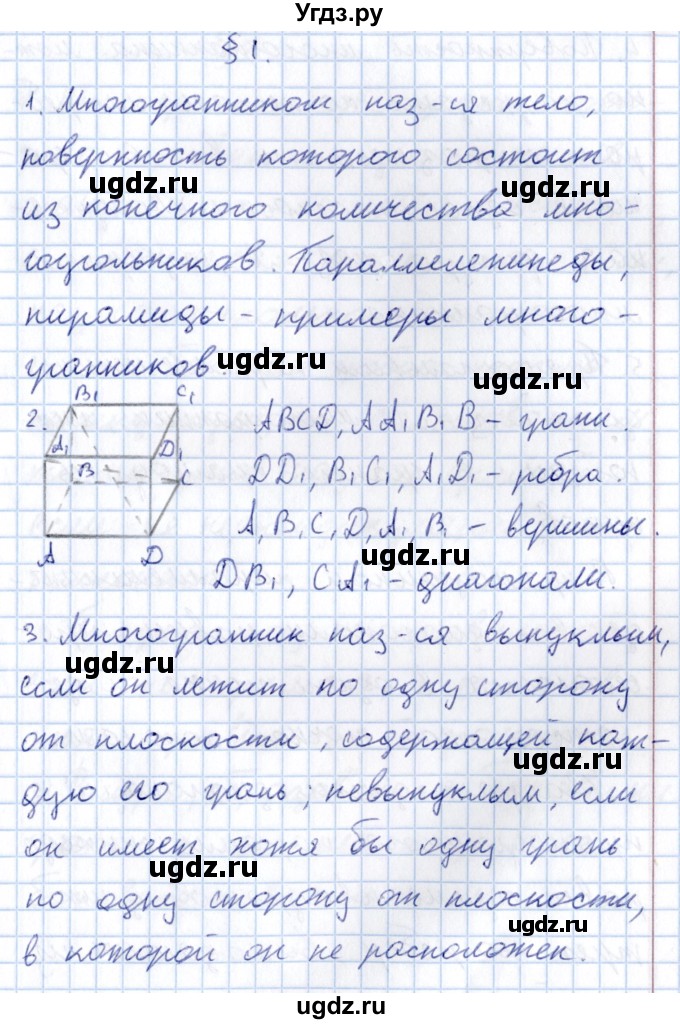 Угдз.ру
§ 1.
1. Многогранником наз-ся тело,
поверхность которого состоит
ugdz.ru ugdz.ru
из конечного количества мно-
гоугольников. Параллелепипеды,
пирамиды - примеры много-
ugdz.ru
гранников.
B₁ C₁
2. ABCD, AA₁B₁B - грани.
ugdz.ru
A₁ D₁
B C DD₁, B₁C₁, A₁D₁ - ребра.
A, B, C, D, A₁, B₁ - вершины.
A D ugdz.ru
DB₁, CA₁ - диагонали.
3. Многогранник наз-ся выпуклым,
ugdz.ru
если он лежит по одну сторону
от плоскости, содержащей каж-
ugdz.ru
дую его грань; невыпуклым, если
он имеет хотя бы одну грань
ugdz.ru
по одну сторону от плоскости,
ugdz.ru
в которой он не расположен.
ugdz.ru